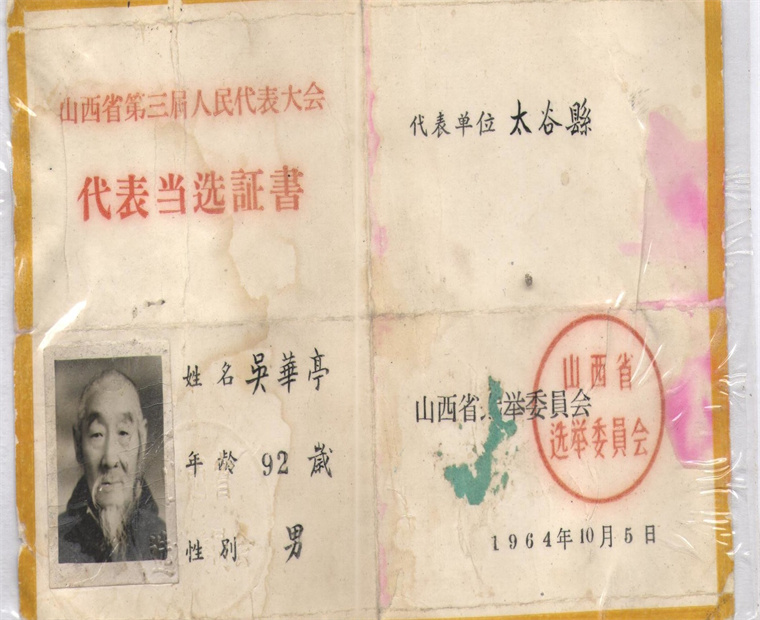 山西省第三届人民代表大会
代表当选証書
姓名 吳華亭
年龄 92 歲
性別 男
代表单位 太谷縣
山西省举委員会
山西省
选举委員会
1964年10月5日